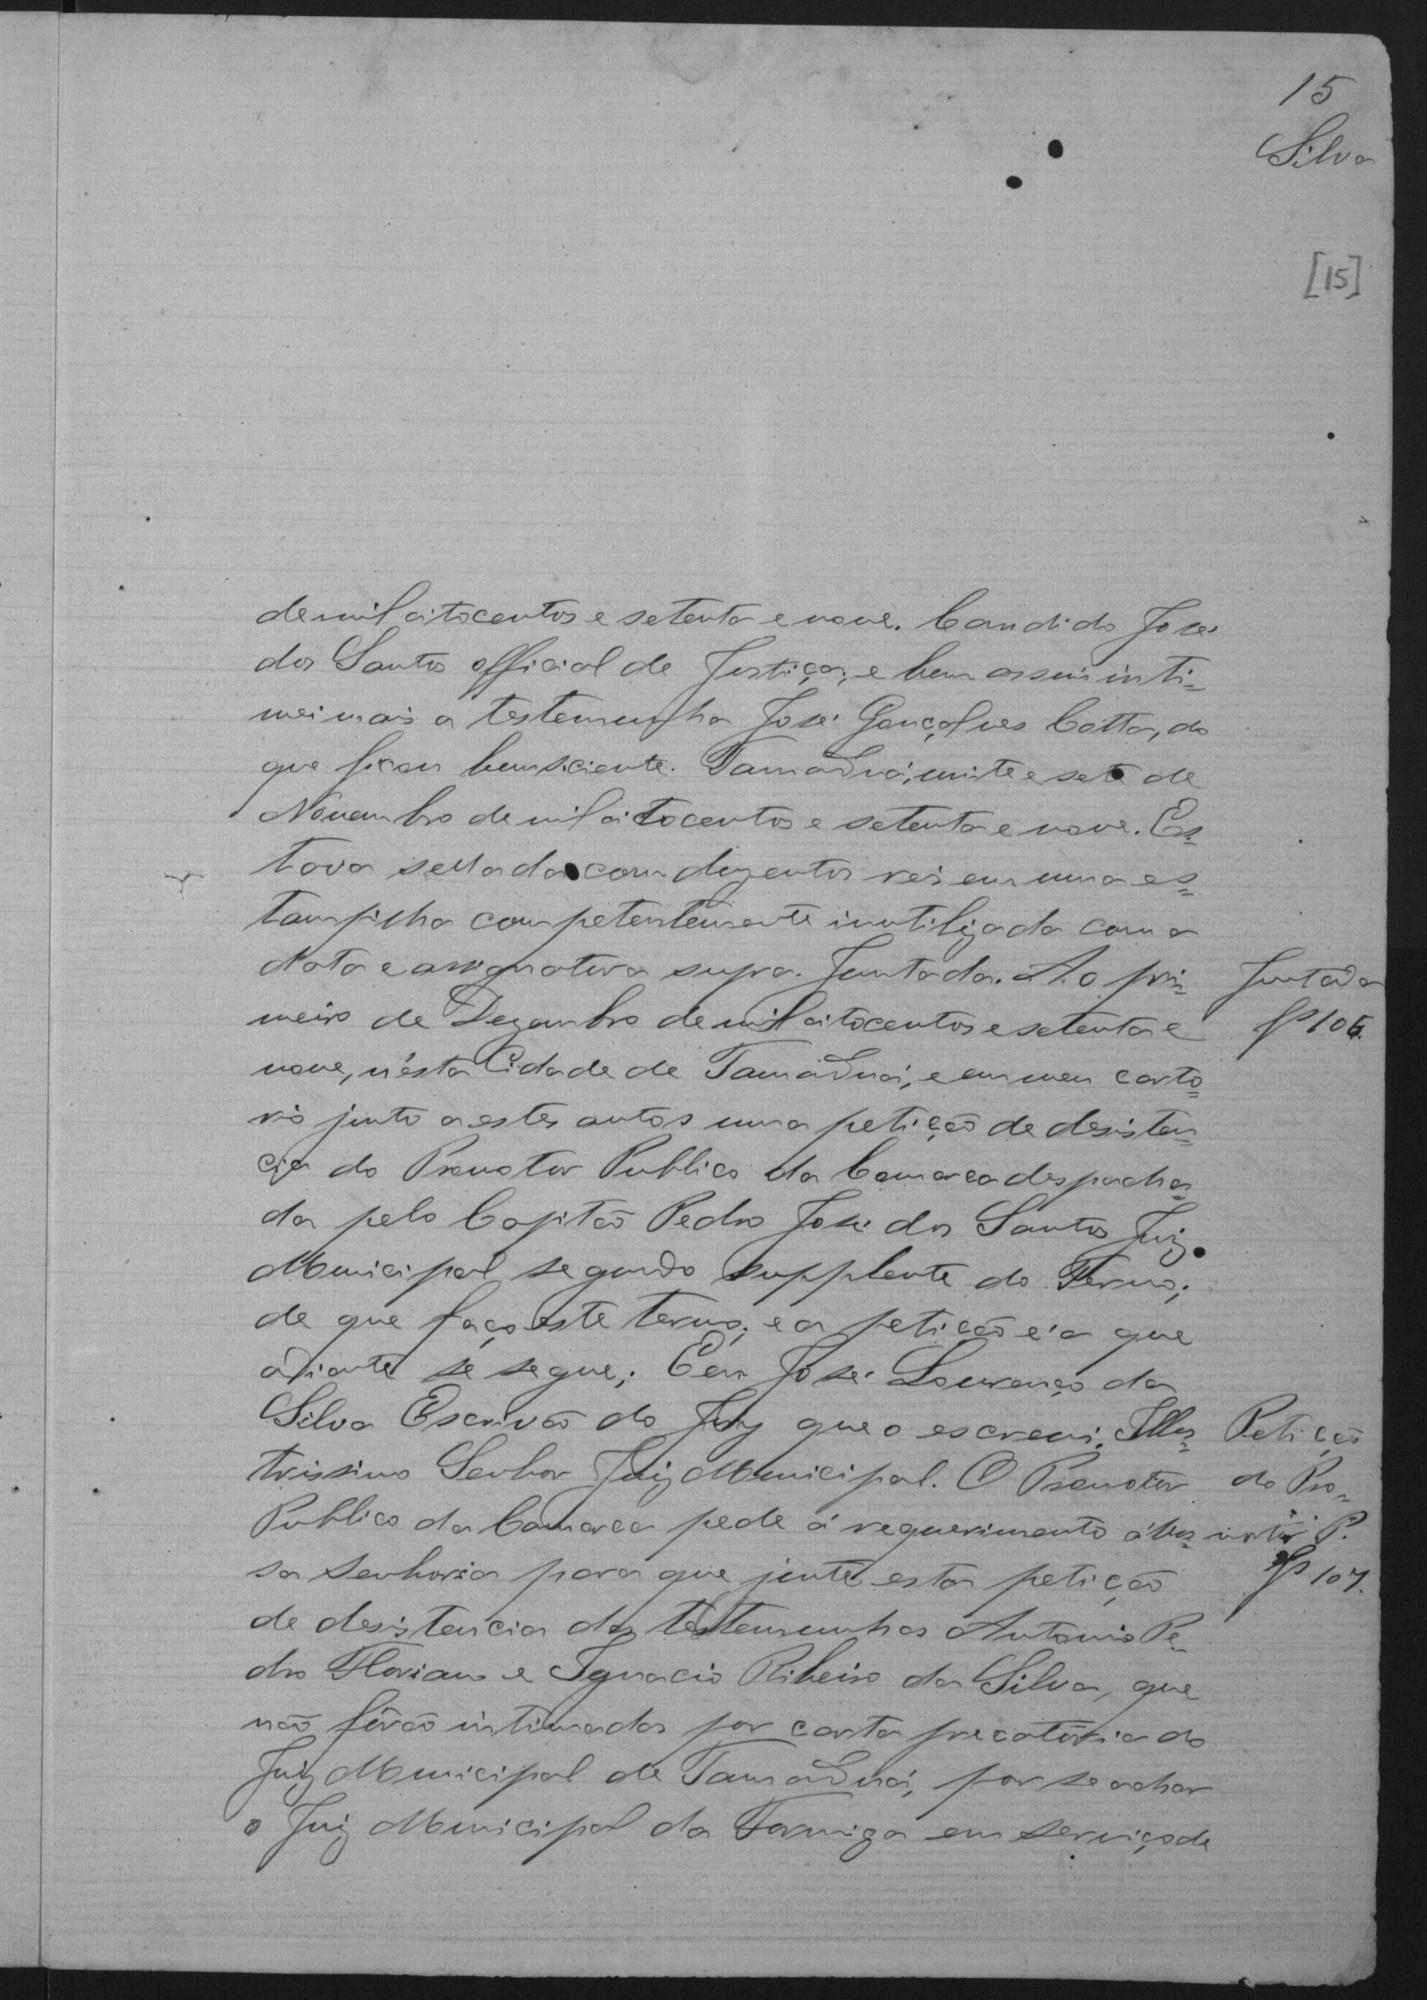 15
Silva
[15]
de mil oitocentos e setenta e nove. Candido José
dos Santos official de Justiça; e bem assim inti=
mei mais a testemunha José Gonçalves Cotta, do
que ficou bem sciente. Tamanduá, vinte e sete de
Novembro de mil oitocentos e setenta e nove. Es=
tava sellada com duzentos reis em uma es=
tampilha competentemente inutilizada com a
data e assignatura supra. Juntada. Ao pri=
Juntada
meiro de Dezembro de mil oitocentos e setenta e
fs 106.
nove, n'ésta Cidade de Tamanduá, e em meu carto=
rio junto a estes autos uma petição de desisten=
cia do Promotor Publico da Comarca despacha=
da pelo Capitão Pedro José dos Santos Juiz
Municipal segundo supplente do Termo;
de que faço este termo; e a petição é a que
adiante se segue; Eu José Lourenço da
Silva Escrivão do Jury que o escrevi. Illus=
Petição
trissimo Senhor Juiz Municipal. O Promotor
do Pro=
Publico da Comarca pede á requerimento á Vos=
motor P.
sa Senhoria para que junte esta petição
fs 107.
de desistencia das testemunhas Antonio Pe=
dro Floriano e Ignacio Ribeiro da Silva, que
não fôrão intimadas por carta precatória do
Juiz Municipal de Tamanduá, por se achar
o Juiz Municipal da Formiga em serviço de